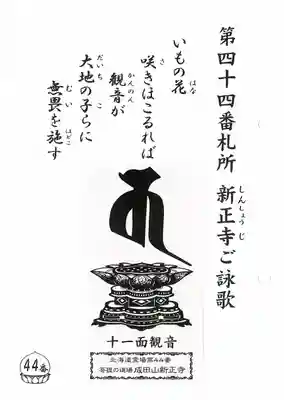 第四十四番札所 新正寺ご詠歌
しんしょうじ
いもの花
はな
咲きほこるれば
さ
観音が
かんのん
大地の子らに
だいち こ
無畏を施す
むい ほどこ
十一面観音
北海道霊場第44番
菩提の道場 成田山新正寺
44番